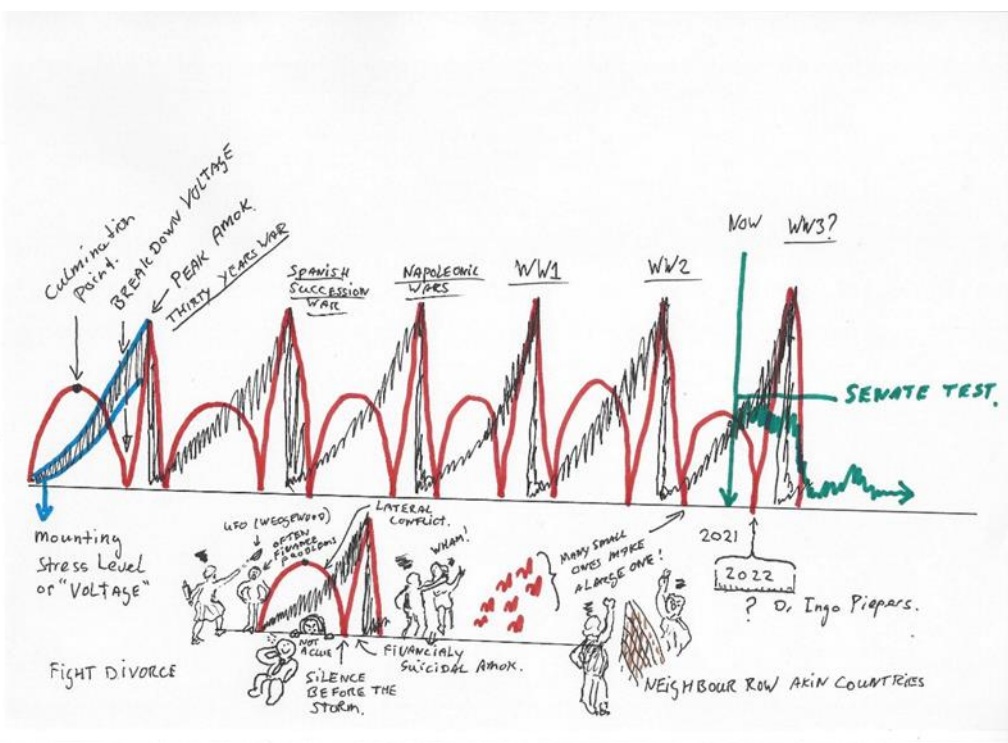 Culmination
Point.
BREAK DOWN VOLTAGE
PEAK AMOK.
THIRTY YEARS WAR
SPANISH
SUCCESSION
WAR
NAPOLEONIC
WARS
WW1
WW2
NOW
WW3?
SENATE TEST.
Mounting
Stress Level
or "VOLTAGE"
UFO (WEDGEWOOD)
OFTEN
FINANCE
PROBLEMS
LATERAL
CONFLICT.
WHAM!
MANY SMALL
ONES MAKE
A LARGE ONE!
2021
2022
? Dr Ingo Piepers.
FIGHT DIVORCE
NOT
A CLUE
SILENCE
BEFORE THE
STORM.
FINANCIALY
SUICIDAL AMOK.
NEIGHBOUR ROW AKIN COUNTRIES